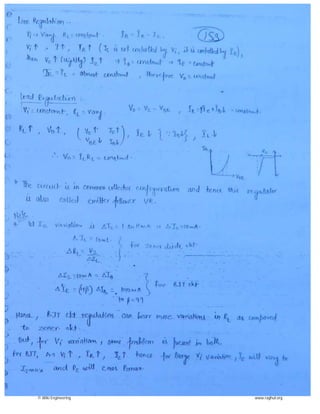 Line Regulation :-
Vi → Vary, RL = constant. IB = IE - IC. 159
Vi ↑, I ↑, IR ↑ (IC is not controlled by Vi, it is controlled by IB),
then VZ ↑ (slightly) IZ ↑ → IB = constant → IE = constant
IE = IL = almost constant, Therefore Vo = constant
Load Regulation :
Vi = constant, RL = Vary. Vo = VZ - VBE,
RL ↑, Vo ↑, (Vo ↑ VBE ↓ IB ↓) IE ↓ IL ↓
∴ Vo = ILRL = constant.
VBE
* The circuit is in common collector configuration and hence this regulator
is also called emitter follower VR.
Note
Let IZ variation is
ΔIL = 10mA.
ΔRL = Vo / ΔIL
For zener diode ckt
ΔIZ = 10mA = ΔIB
ΔIE = (1+β) ΔIB = 1000mA
β = 99
For BJT ckt
Hence, BJT ckt regulation can bear more variations in RL as compared
to zener ckt.
But, for Vi variation, same problem is present in both.
For BJT, As Vi ↑, IR ↑, IZ ↑ hence for large Vi variation, IZ will vary to
IZmax and PZ will cross PZmax
© Wiki Engineering www.raghul.org